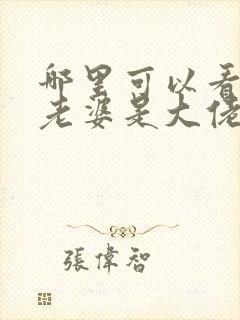 哪里可以看
老婆是大佬
張偉智